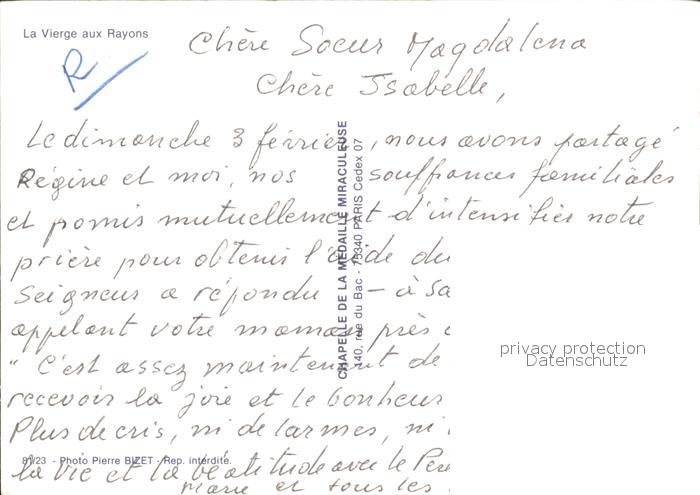 La Vierge aux Rayons
R
Chère Soeur Magdalena
Chère Isabelle,
Le dimanche 3 février, nous avons partagé
Régine et moi, nos souffrances familiales
et promis mutuellement d'intensifier notre
prière pour obtenir l'aide du
Seigneur a répondu - à sa
appelant votre maman près
" C'est assez maintenant de
recevoir la joie et le bonheur
Plus de cris, ni de larmes, ni
la vie et la béatitude avec le Père
Marie et tous les
CHAPELLE DE LA MÉDAILLE MIRACULEUSE
140, rue du Bac - 75340 PARIS Cedex 07
81/23 - Photo Pierre BIZET - Rep. interdite.
privacy protection
Datenschutz